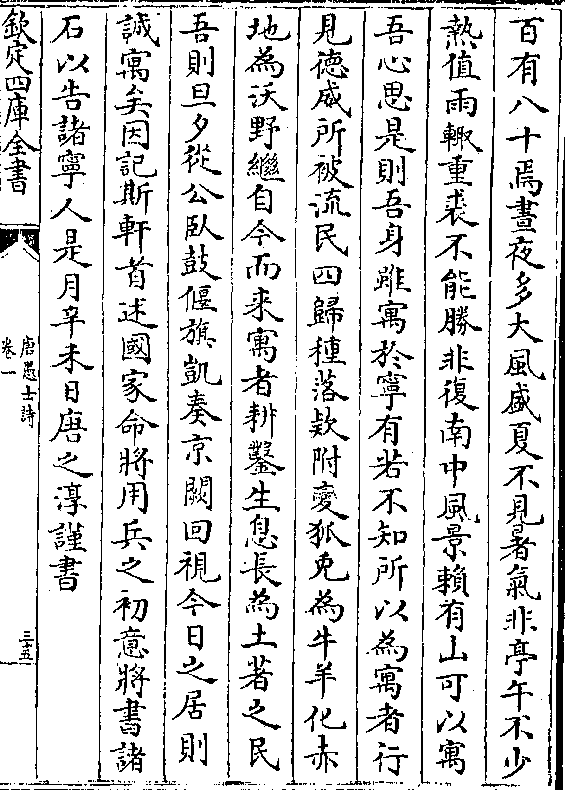 百有八十焉晝夜多大風盛夏不見暑氣非亭午不少
熱值雨輙重裘不能勝非復南中風景賴有山可以寓
吾心思是則吾身雖寓於寧有若不知所以為寓者行
見德威所被流民四歸種落欵附變狐兎為牛羊化赤
地為沃野繼自今而来寓者耕鑿生息長為土著之民
吾則旦夕從公臥鼓偃旗凱奏京闕回視今日之居則
誠寓矣因記斯軒首述國家命將用兵之初意將書諸
石以告諸寧人是月辛未日唐之淳謹書
欽定四庫全書
唐愚士詩
卷一
三十五